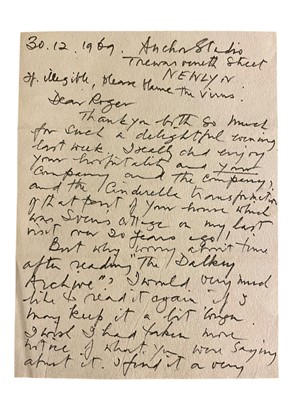 30.12.1969. Anchor Studio
Trewarveneth Street
NEWLYN
If illegible, please blame the virus.
Dear Roger
Thank you both so much
for such a delightful evening
last week. I really did enjoy
your hospitality and your
company and the company,
and the Cinderella transformation
of that part of your house which
was on my last
visit over 20 years ago!
But why worry about time
after reading "The Dalkey
Archive"? I would very much
like to read it again if I
may keep it a bit longer.
I wish I had taken more
notice of what you were saying
about it. I find it a very